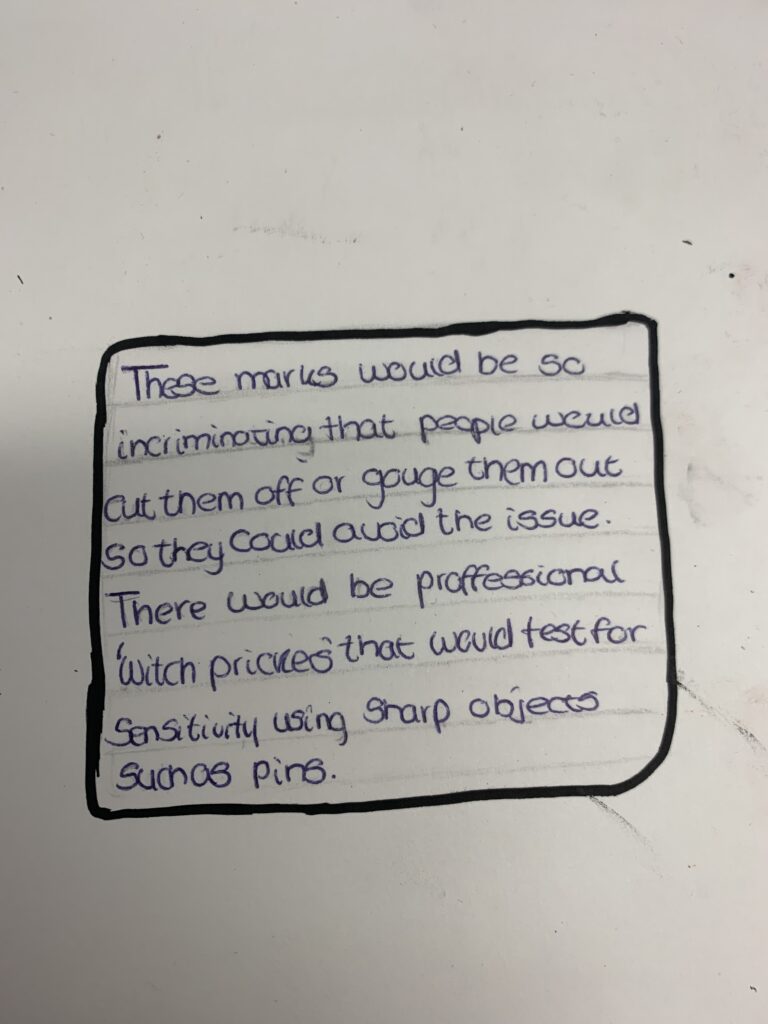 These marks would be so
incriminating that people would
cut them off or gouge them out
so they could avoid the issue.
There would be proffessional
'witch prickes' that would test for
sensitivity using sharp objects
such as pins.